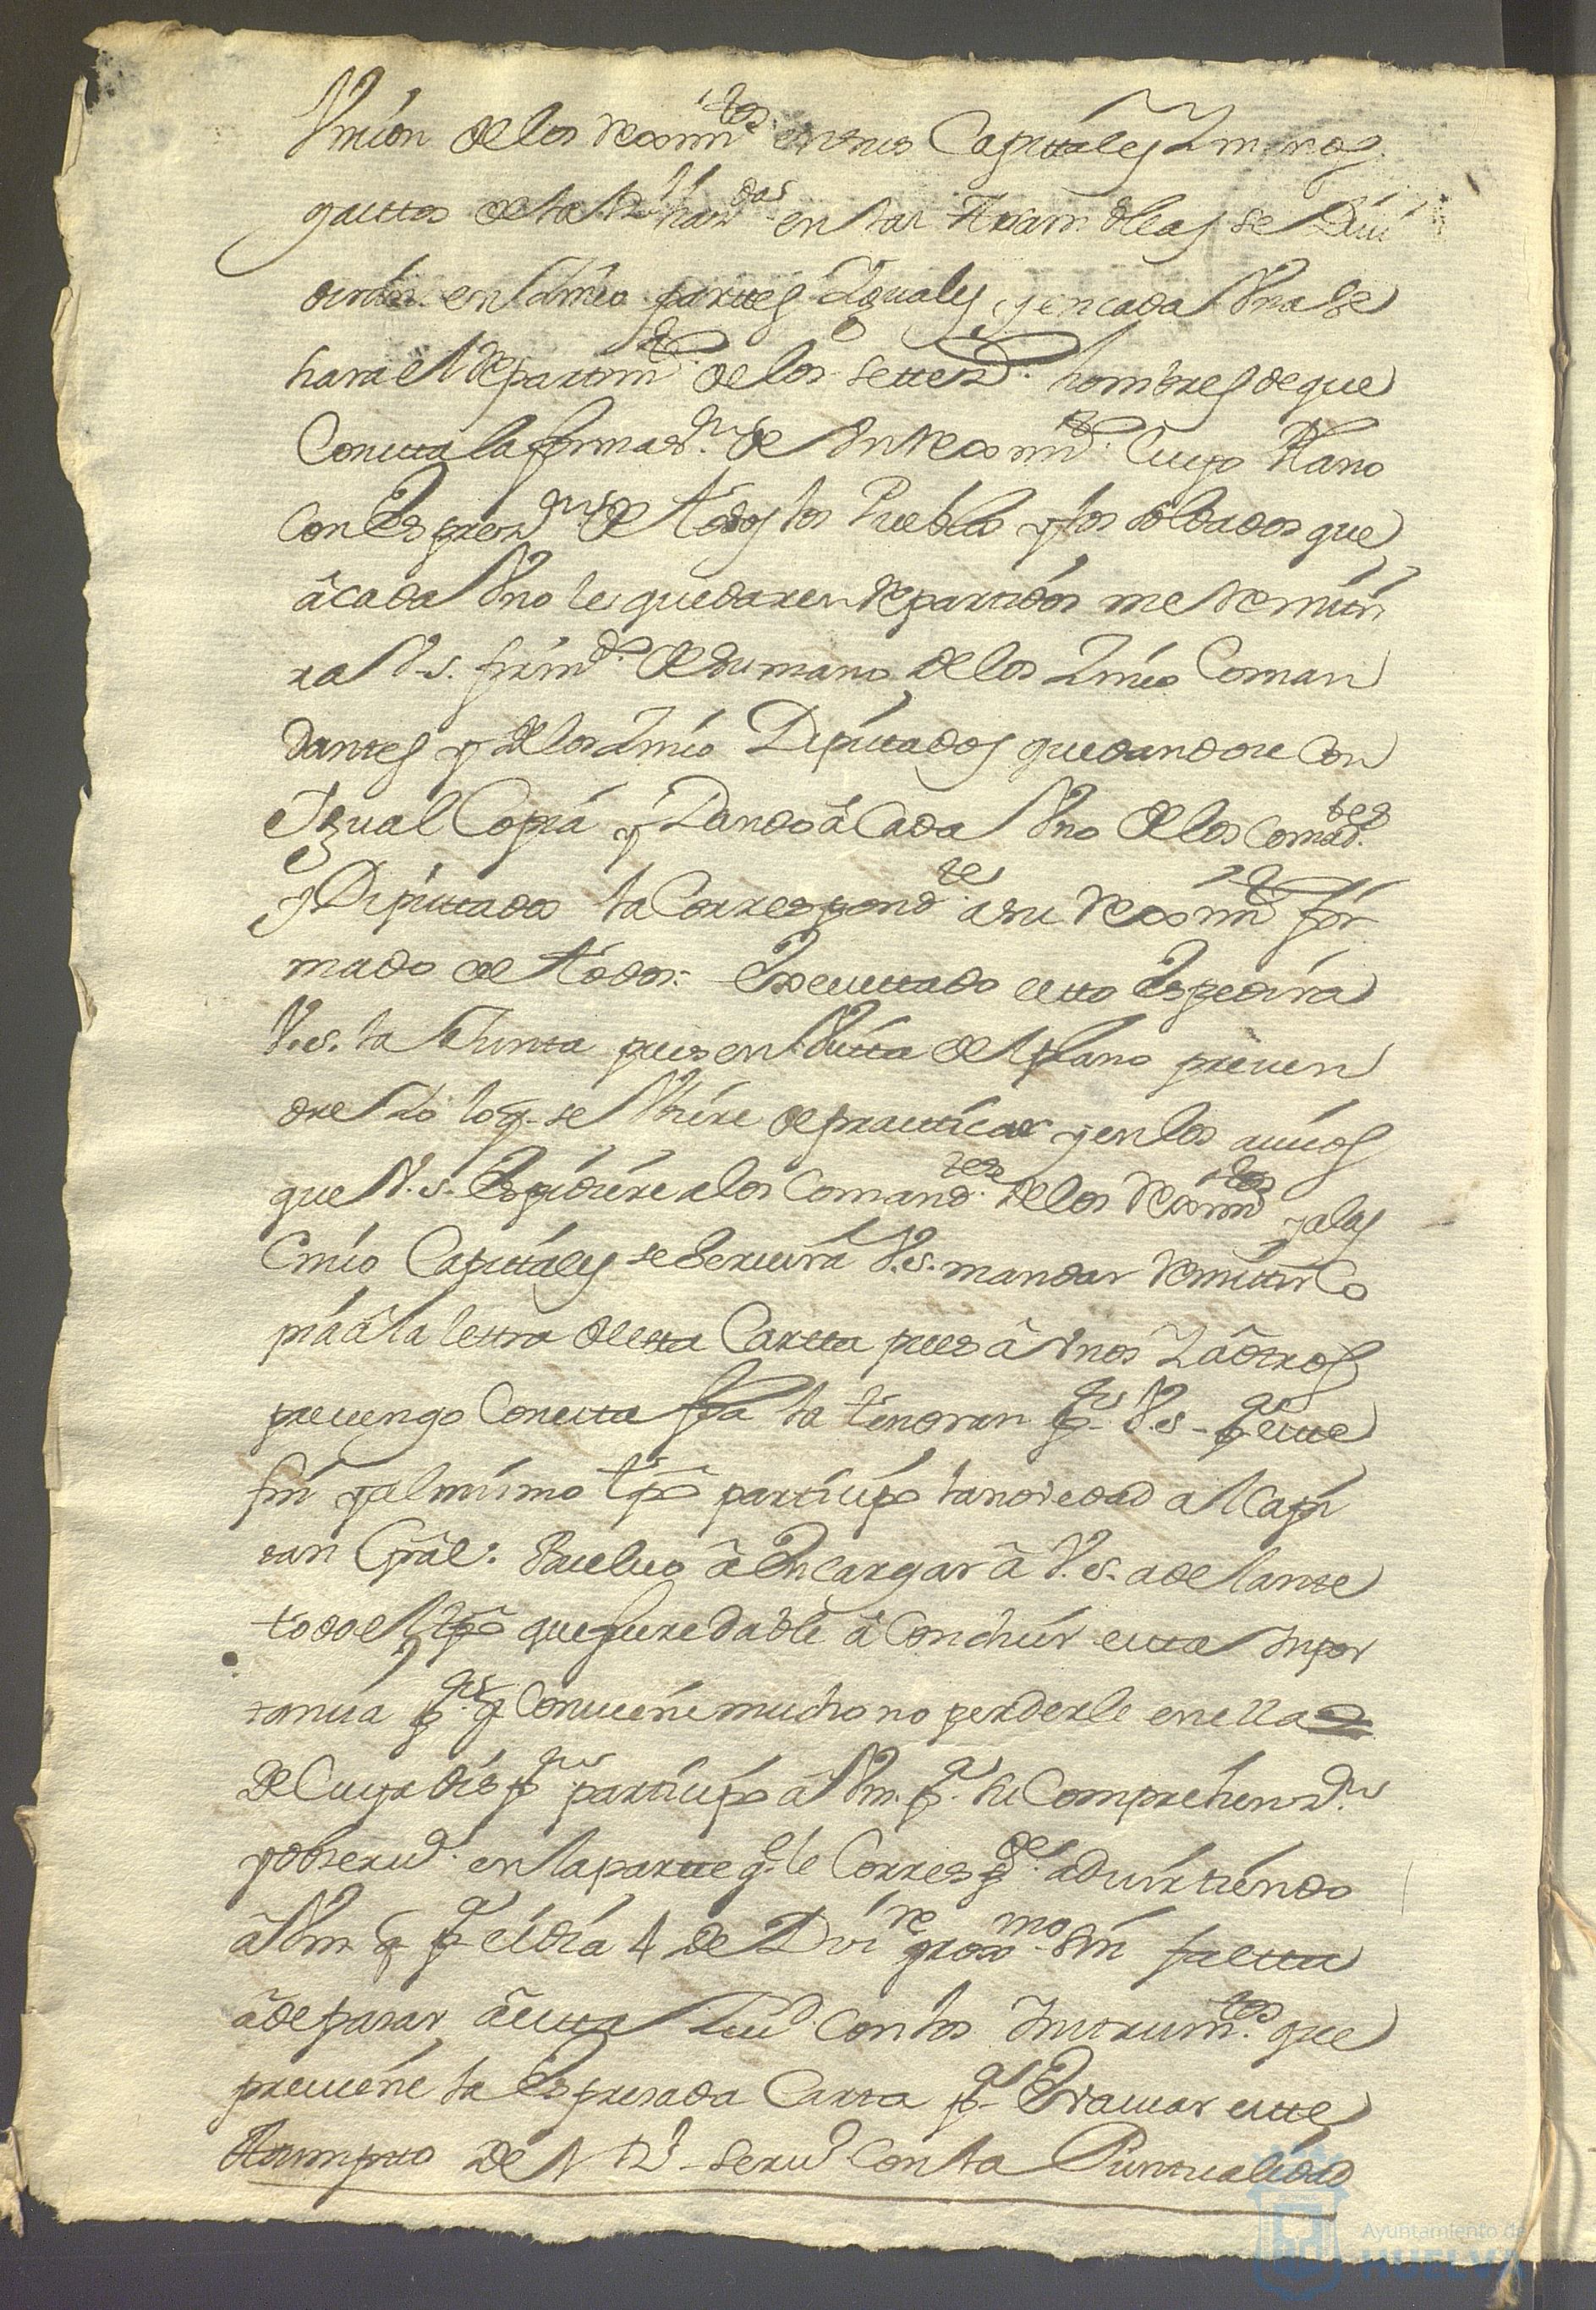 Vnion de los Reximtos en sus Capitales
gastos de la Rl hazda en las Asambleas se Divi
diran en Cinco partes Yguales, y en cada Vna se
hara el Repartimto de los settezs hombres de que
Consta la formazn de Vn Reximto Cuyo Plano
con Espresn de todos los Pueblos y los soldados que
â cada Vno les quedaren Repartidos me Remiti
ra V.S. firmdo de su mano, de los Zinco Coman
dantes y de los Zinco Diputados quedandose Con
Igual Copia y Dando â Cada Vno de los Comadtes
y Diputados la Correspondte a su Reximto for
mado de todos: Executtado esto Espedira
V.S. la Junta pues en Vista del plano preven
dre lo q. se Vbiere de practicar y en los avisos
que V.S. Espidiere a los Comandtes de los Reximtos y a las
Cinco Capitales se Servira V.S. mandar Remitir Co
pia â la letra de esta Cartta pues â Vnos Y âotros
prevengo Con esta fha la tendran pr V.S. pa este
fin y al mismo tpo participo la novedad al Capi
tan Gral. Buelvo â Encargar â V.S. adelante
todo el tpo que fuere dable â Concluir esta Impor
tanzia ps q Conviene mucho no perderle en ella
De Cuya dispn participo â Vm. pa su Comprehenzn
y observa en la parte q. le Correspde advirtiendo
â Vm q pa el dia 4 de Dizre proxmo sin faltta
â de pasar â esta Ciud Con los Instrumtos que
previene la Espresada Carta pa Evacuar este
Asumpto de el Rl servo Con la Puntualidad
Ayuntamiento de
HUELVA